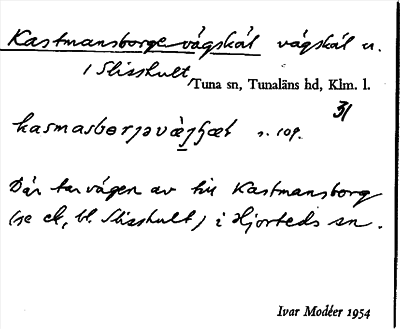 Kastmansborgevägskäl vägskäl n.
i Slisshult,
Tuna sn, Tunaläns hd, Klm. l.
31
kasmasborjəvä̀jʃæl s. 109.
Där tar vägen av till Kastmansborg
(se d:o, bl. Slisshult) i Hjorteds sn.
Ivar Modéer 1954